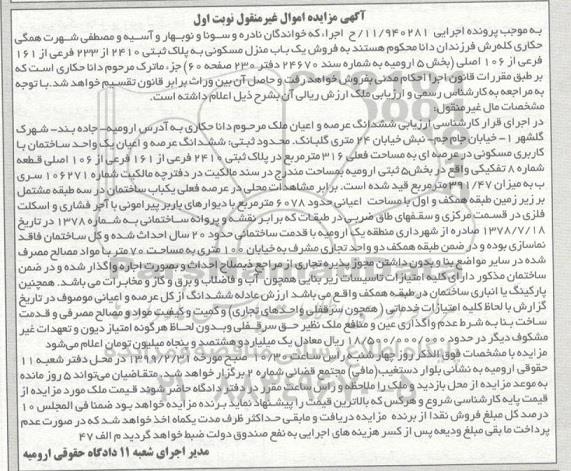 آگهی مزایده اموال غیرمنقول نوبت اول
به موجب پرونده اجرایی ۱۱/۹۴۰۲۸۱/ح اجرا، که خواندگان نادره و سونا و نوبهار و آسیه و مصطفی شهرت همگی
حکاری کله‌رش فرزندان دانا محکوم هستند به فروش یک باب منزل مسکونی به پلاک ثبتی ۲۴۱۰ از ۲۳۳ فرعی از ۱۶۱
فرعی از ۱۰۶ اصلی (بخش ۵ ارومیه به شماره سند ۲۴۶۷۰ دفتر ۲۳۰ صفحه ۶۰) جزء ماترک مرحوم دانا حکاری است که
بر طبق مقررات قانون اجرا احکام مدنی بفروش خواهد رفت و حاصل آن بین وراث برابر قانون تقسیم خواهد شد. با توجه
به مراجعه به کارشناس رسمی و ارزیابی ملک ارزش ریالی آن بشرح ذیل اعلام داشته است.
مشخصات مال غیرمنقول:
در اجرای قرار کارشناسی ارزیابی ششدانگ عرصه و اعیان ملک مرحوم دانا حکاری به آدرس ارومیه- جاده بند- شهرک
گلشهر ۱- خیابان جام‌جم- نبش خیابان ۲۴ متری گلبانگ. محدود ثبتی: ششدانگ عرصه و اعیان یک واحد ساختمان با
کاربری مسکونی در عرصه ای به مساحت فعلی ۳۱۶ مترمربع در پلاک ثبتی ۲۴۱۰ فرعی از ۱۶۱ فرعی از ۱۰۶ اصلی قطعه
شماره ۸ تفکیکی واقع در بخش ۵ ثبتی ارومیه بمساحت مندرج در سند مالکیت در دفترچه مالکیت شماره ۱۰۶۲۷۱ سری
ب به میزان ۳۹۱/۴۷ مترمربع قید شده است. برابر مشاهدات محلی در عرصه فعلی یکباب ساختمان در سه طبقه مشتمل
بر زیر زمین طبقه همکف و اول با مساحت اعیانی حدود ۶۰۷۸ مترمربع با دیوارهای باربر پیرامونی با آجر فشاری و اسکلت
فلزی در قسمت مرکزی و سقفهای طاق ضربی در طبقات که برابر نقشه و پروانه ساختمانی به شماره ۱۳۷۸ در تاریخ
۱۳۷۸/۷/۱۸ صادره از شهرداری منطقه یک ارومیه با قدمت ساختمانی حدود ۲۰ سال احداث شده و کل ساختمان فاقد
نماسازی بوده و در ضمن طبقه همکف دو واحد تجاری مشرف به خیابان ۱۰۰ متری به مساحت ۷۰ متر با مواد مصالح مصرف
شده در سایر مواضع بنا و بدون داشتن مجوز پذیره تجاری از مراجع ذیصلاح احداث و بصورت اجاره واگذار شده و در ضمن
ساختمان مذکور دارای کلیه امتیازات تاسیسات زیر بنایی همچون آب و فاضلاب و برق و گاز و مخابرات می باشد. همچنین
پارکینگ یا انباری ساختمان در طبقه همکف واقع می باشد ارزش عادله ششدانگ از کل عرصه و اعیانی موصوف در تاریخ
گزارش با لحاظ کلیه امتیازات خدماتی (همچون سرقفلی واحدهای تجاری) و کمیت و کیفیت مواد و مصالح مصرفی و قدمت
ساخت بنا به شرط عدم واگذاری عین و منافع ملک نظیر حق سرقفلی و بدون لحاظ هرگونه امتیاز دیون و تعهدات غیر
مشکوف دیگر در حدود ریال معادل یک میلیارد و هشتصد و پنجاه میلیون تومان اعلام می‌شود
مزایده با مشخصات فوق الذکر روز چهارشنبه راس ساعت صبح مورخه در محل دفتر شعبه ۱۱
حقوقی ارومیه به نشانی بلوار دستغیب (مافی) مجتمع قضائی شماره ۲ برگزار خواهد شد. متقاضیان می‌تواند ۵ روز مانده
به موعد مزایده از محل بازدید و ملک را ملاحظه و راس ساعت مقرر در دفتر دادگاه حاضر شوند قیمت ملک مورد مزایده از
قیمت پایه کارشناسی شروع و هر کس که بالاترین قیمت را پیشنهاد نماید برنده مزایده خواهد بود ضمنا فی المجلس ۱۰
درصد کل مبلغ فروش نقدا از برنده مزایده دریافت و مابقی حداکثر ظرف مدت یکماه اخذ خواهد شد که در صورت عدم
پرداخت ما بقی مبلغ ودیعه پس از کسر هزینه های اجرایی به نفع صندوق دولت ضبط خواهد گردید م الف ۴۷
مدیر اجرای شعبه ۱۱ دادگاه حقوقی ارومیه